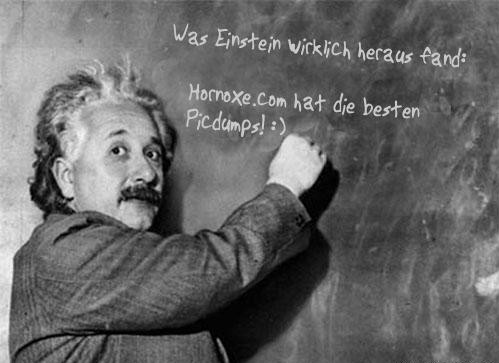 Was Einstein wirklich heraus fand:
Hornoxe.com hat die besten
Picdumps! :)